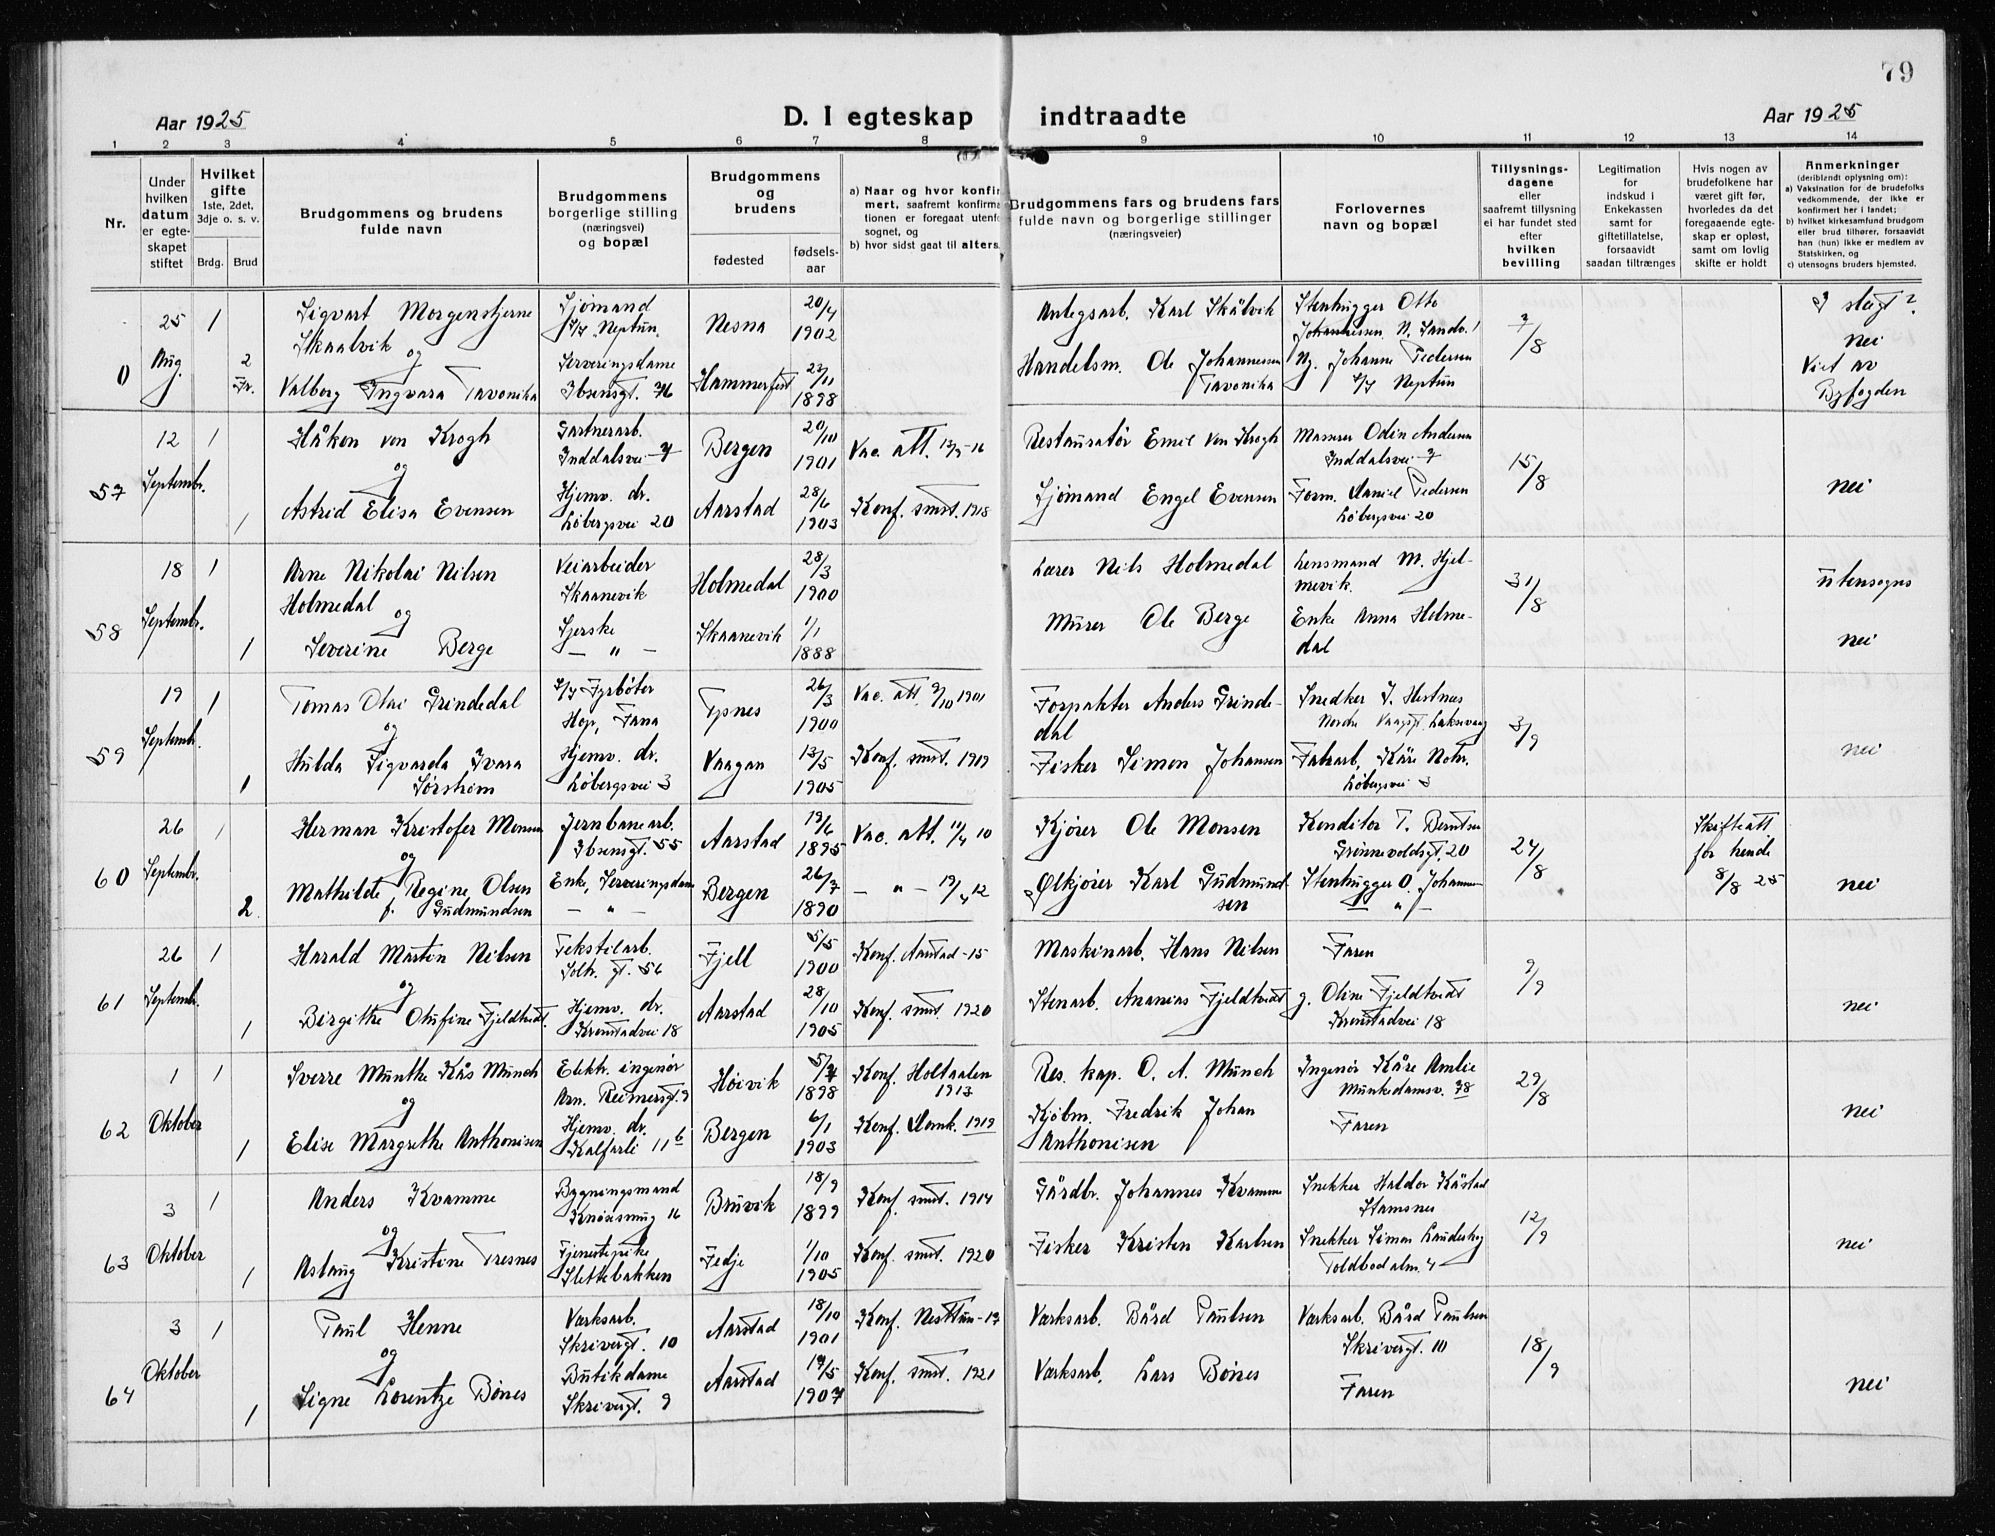 79
Aar 1925
D. I egteskap indtraadte
Aar 1925
1 2 3 4 5 6 7 8 9 10 11 12 13 14
Nr.
Under hvilken datum er egteskapet stiftet
Hvilket gifte
1ste, 2det, 3dje o. s. v.
Brdg. Brud
Brudgommens og brudens fulde navn
Brudgommens borgerlige stilling (næringsvei) og bopæl
Brudgommens og brudens
fødested
fødselsaar
a) Naar og hvor konfirmert, saafremt konfirmationen er foregaat utenfor sognet, og
b) hvor sidst gaat til alters.
Brudgommens fars og brudens fars fulde navn og borgerlige stillinger (næringsveier)
Forlovernes navn og bopæl
Tillysningsdagene eller saafremt tillysning ei har fundet sted efter hvilken bevilling
Legitimation for indskud i Enkekassen samt for giftetillatelse, forsaavidt saadan tiltrænges
Hvis nogen av brudefolkene har været gift før, hvorledes da det foregaaende egteskap er opløst, samt om lovlig skifte er holdt
Anmerkninger
(deriblandt oplysning om):
a) Vaksination for de brudefolks vedkommende, der ikke er konfirmert her i landet;
b) hvilket kirkesamfund brudgom eller brud tilhører, forsaavidt han (hun) ikke er medlem av Statskirken, og
c) utensogns bruders hjemsted.
0
25 Aug.
1
Sigvart Morgenstjerne Skaalvik
Sjømand
D/S Neptun
Nesna
20/4 1902
Anlegsarb. Karl Skålvik
Stenhugger Otto Johannessen N. Sandv.
7/8
I slegt?
nei
og
2 Fr.
Valborg Ingvara Tavonika
Serveringsdame
Ibsensgt. 76
Hammerfest
1898
Handelsm. Ole Johannessen Tavonika
Johanne Pedersen
D/S Neptun
Viet av Byfogden
57
12 Septembr.
1
Håkon von Krogh
Gartnerarb.
Inddalsvei 7
Bergen
20/10 1901
Vac. att.
Restauratør Emil von Krogh
Murer Odin Andersen
Inddalsvei 7
15/8
og
1
Astrid Elisa Evensen
Hjemv. dr.
Løbergsvei 20
Aarstad
28/6 1903
Konf. smst. 1918
Sjømand Engel Evensen
Form. Daniel Pedersen
Løbergsvei 20
nei
58
18 Septembr.
1
Arne Nikolai Nilsen Holmedal
Veiarbeider
Skaanevik
Holmedal
28/3 1900
Lærer Nils Holmedal
Lensmand M. Hjelmevik.
31/8
utensogns
og
1
Severine Berge
Sjerske
— " —
Skaanevik
1/1 1888
Murer Ole Berge
Enke Anna Holmedal
nei
59
19 Septembr.
1
Tomas Olai Grindedal
D/S Fyrbøter
Hop, Fana
26/3 1900
Vac. att. 9/10 1901
Forpakter Anders Grindedal
Snedker J. Hestnes
Nordre Vaagsgt. Laksevaag
3/9
og
1
Hulda Sigvarda Ivara Sørsheim
Hjemv. dr.
Løbergsvei 3
Vaagan
13/5 1905
Konf. smst. 1919
Fisker Simon Johansen
Fabrarb. Kåre
Løbergsvei 3
nei
60
26 Septembr.
1
Herman Kristofer Monsen
Jernbanearb.
Ibsensgt. 55
Aarstad
19/6 1895
Vac. att. 11/4 10
Kjører Ole Monsen
Konditor T. Berntsen
Grønnevoldsgt. 20
24/8
Skifteatt for hende 8/8 25
og
2
Mathilde Regine Olsen
f. Gudmundsen
Enke, Serveringsdam
— " —
Bergen
26/7 1890
— " — 19/4 12
Ølkjører Karl Gudmundsen
Stenhugger O. Johannsen
— " —
nei
61
26 Septembr.
1
Harald Martin Nilsen
Tekstilarb.
Solh. gt. 56
Fjell
5/5 1900
Konf. Aarstad -15
Maskinarb. Hans Nilsen
Faren
9/9
og
1
Birgithe Olufine Fjeldtvedt.
Hjemv. dr.
Kronstadvei 18
Aarstad
28/10 1905
Konf. smst. 1920
Stenarb. Ananias Fjeldtvedt
g. Oline Fjeldtvedt
Kronstadvei 18
nei
62
1 Oktober
1
Sverre Munthe Kås Munch
Elektr. ingenør
Arn. Reimersgt. 9
Høivik
1898
Konf. Holtaalen 1913
Res. kap. O. A. Munch
Ingenør Kåre Amlie
Munkedamsv. 78
29/8
og
1
Elise Margrethe Anthonisen
Hjemv. dr.
Kalfarli 11 b
Bergen
6/1 1903
Konf. Domk. 1919
Kjøbm. Fredrik Johan Anthonisen
Faren
nei
63
3 Oktober
1
Anders Kvamme
Bygningsmand
Knøsesmug 16
Bruvik
18/9 1899
Konf. smst. 1914
Gårdbr. Johannes Kvamme
Snekker Haldor Kåstad
Stamsnes
12/9
og
1
Aslaug Kristine Tresnes
Tjenestepike
Slettebakken
Fedje
1/10 1905
Konf. smst. 1920
Fisker Kristen Karlsen
Snekker Simon Landsvig
Toldbodalm. 4
nei
64
3 Oktober
1
Paul Henne
Værksarb.
Skrivergt. 10
Aarstad
18/10 1901
Konf. Nesttun
Værksarb. Bård Paulsen
Værksarb. Bård Paulsen
Skrivergt. 10
18/9
og
1
Signe Lorentze Bønes
Butikdame
Skrivergt. 9
Aarstad
19/5 1907
Konf. smst. 1921
Værksarb. Lars Bønes
Faren
nei